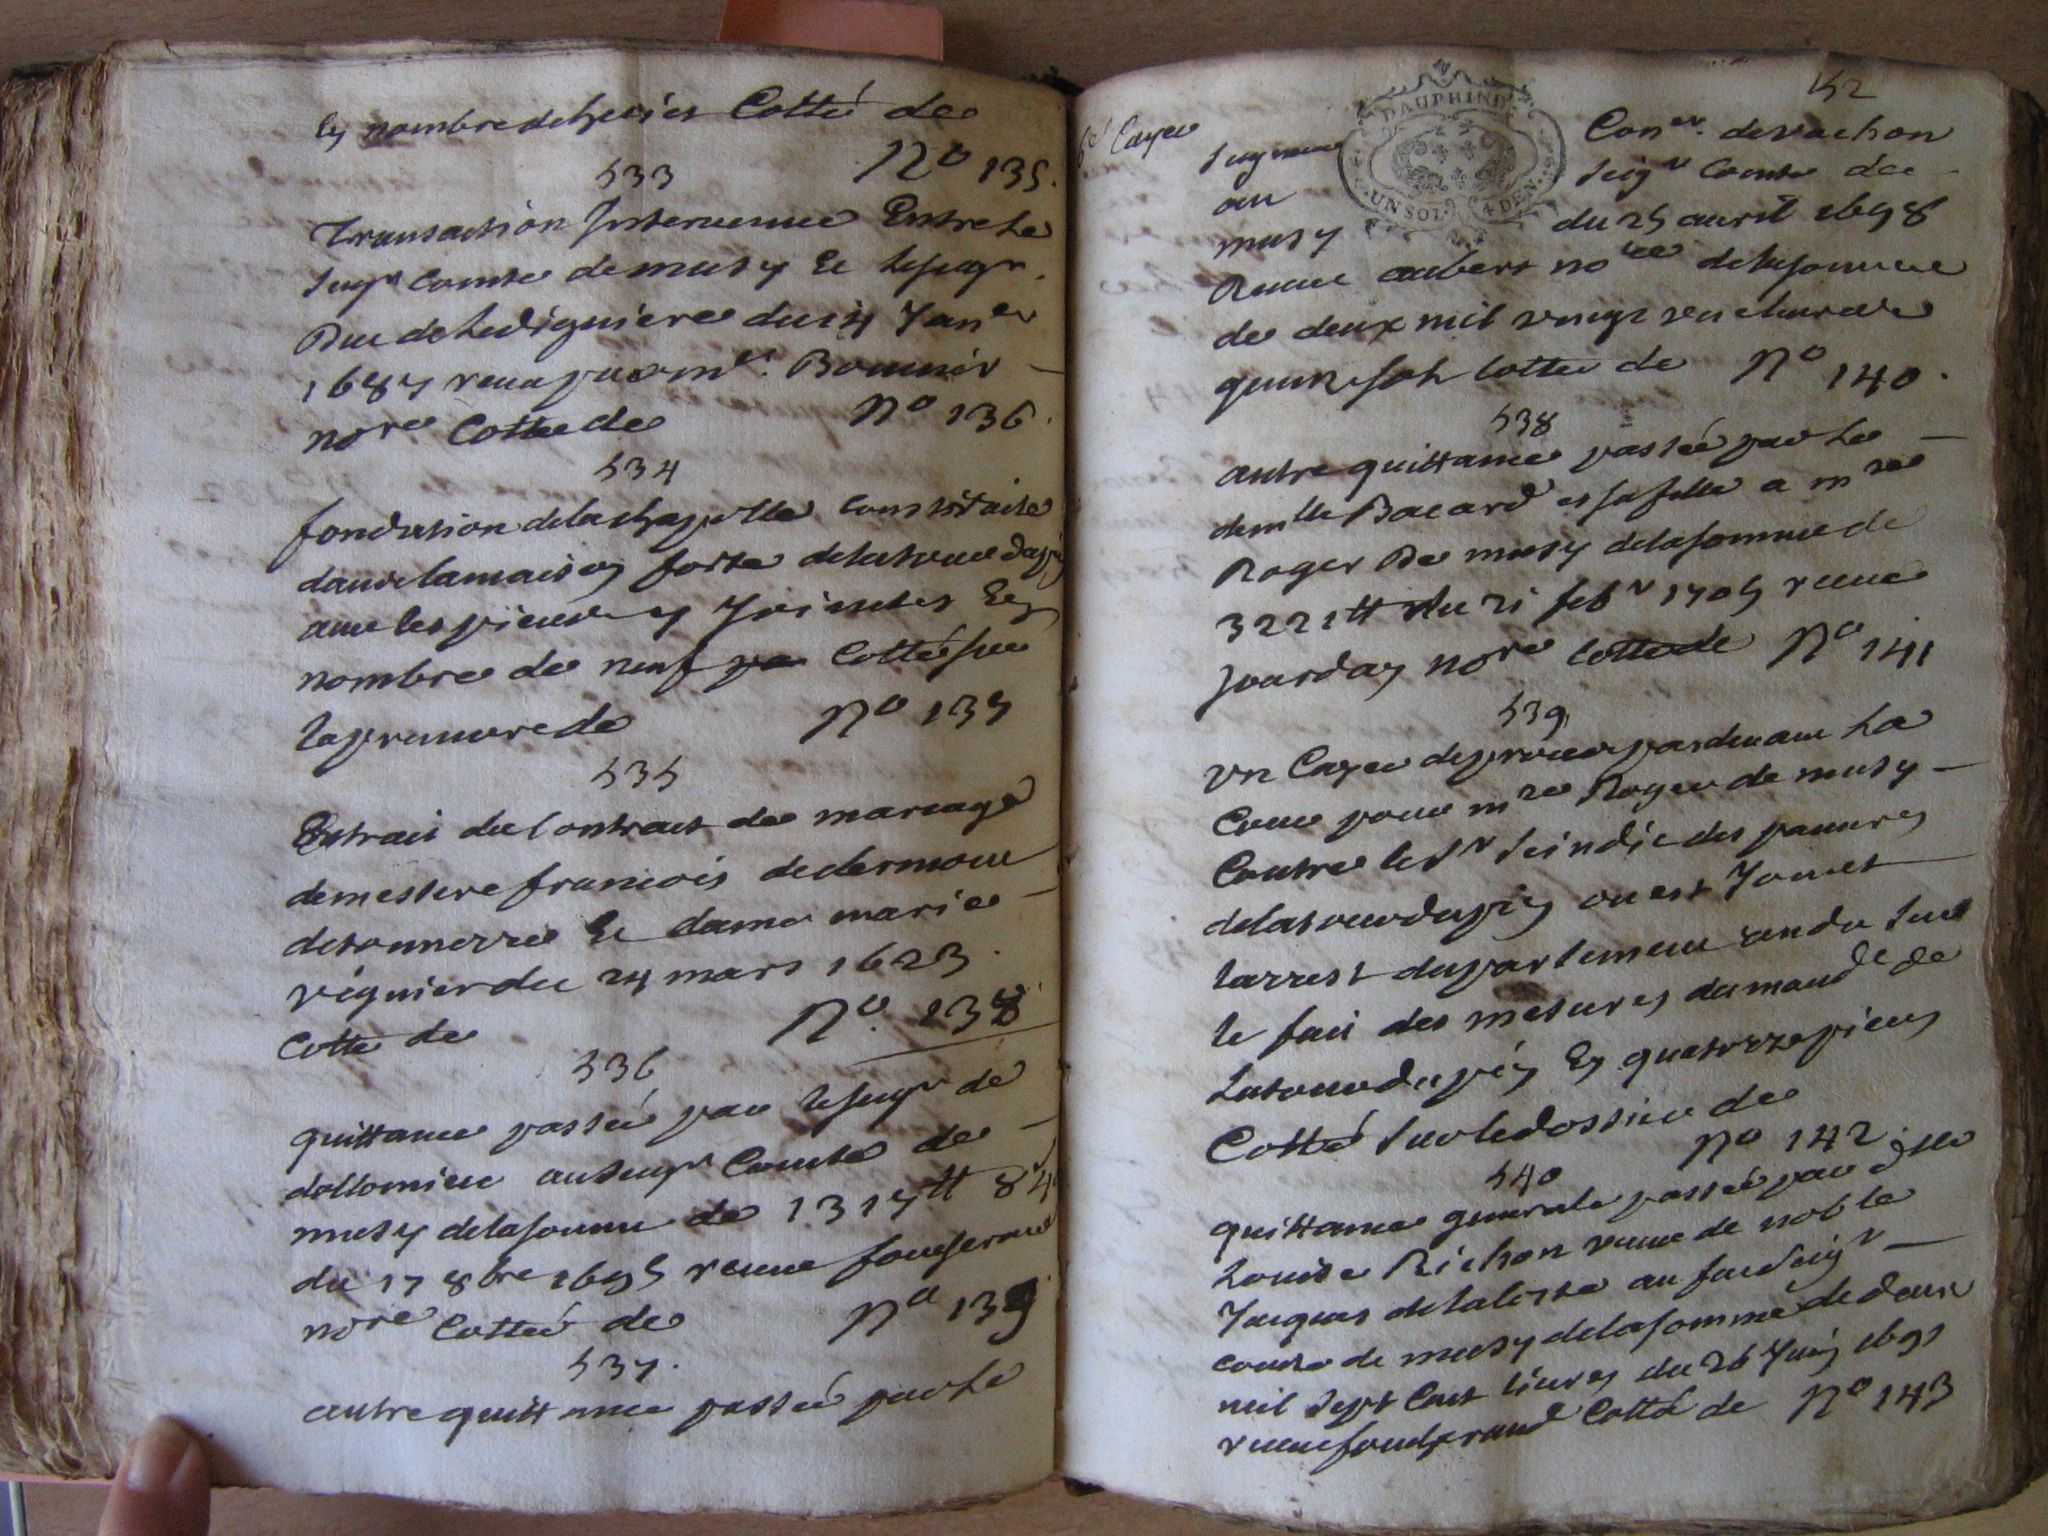 en nombre de huict Cotté de
N° 135.
533
Transaction Intervenue Entre le
seigr Comte de musy Et le seigr
Duc de Lesdiguiere du 14 Janer
1687 receu par mr. Bouvier
nore Cottée de N° 136.
534
fondation de la chapelle construite
dans la maison forte de la tour dupin
avec les pieces y Jointes En
nombre de neuf Cotté sur
la premiere de N° 137
535
Extrait du Contract de mariage
de messire francois de clermon
de tonnerre Et dame marie
vignier du 24 mars 1623.
Cotté de N°. 138
536
quittance passée par le seigr de
dollomieu au seigr Comte de
musy de la somme de 1317tt 8s 4d
du 17 8bre 1695 receue
nore Cottée de N° 139
537.
autre quittance passée par le
152
6e Cayer
DAUPHINE
UN SOL 4 DEN.
seigneur Coner. de vachon
au seigr Comte de
musy du 25 avril 1698
Receue aubert noire de la somme
de deux mil vingt
quinze sols Cottée de N° 140.
538
autre quittance passée par la
demlle Bacard et sa fille a mre
Roger De musy de la somme de
3221tt du 21 febr 1705 receue
Jourdan nore Cottée de N° 141
539
vn Cayer de procedure pardevant La
Cour pour mre Roger de musy
Contre le sr scindic des pauvres
de la tour dupin ou est Joinct
larrest du parlement rendu sur
le fait des mesures du mandt de
La tour du pin En quatorze pieces
Cotté sur le dossier de
N° 142.
540
quittance generale passée par dlle
Louise Richon veuve de noble
Jacques de la coste au seigr
comte de musy de la somme de deux
mil sept Cent livres du 26 Juin 1691
receue Cotté de N° 143